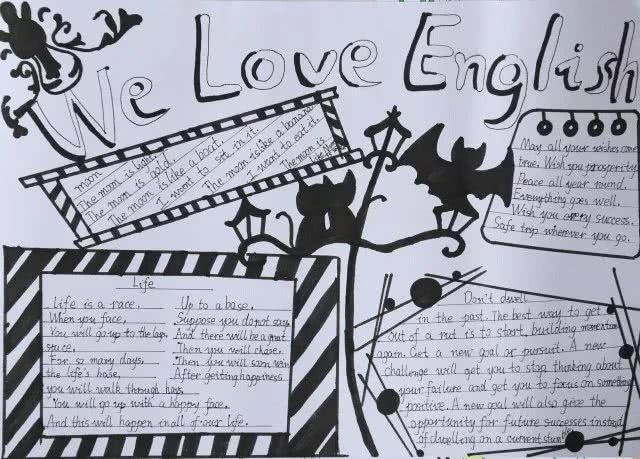 We Love English
moon
The moon is light.
The moon is bold.
The moon is like a boat.
I want to sit in it.
The moon is like a banana
I want to eat it.
The moon is
May all your wishes come
true. Wish you prosperity
Peace all year round.
Everything goes well.
Wish you every success.
Safe trip wherever you go.
Life
Life is a race.
When you face,
You will go up to the
space.
For so many days,
the life's base,
you will walk through
You will go up with a happy face.
And this will happen in all of our life.
Up to a base.
Suppose you do not say,
And there will be a great
Then you will chase.
Then you will soon win
After getting happeness.
Don't dwell
in the past. The best way to get
out of a rut is to start, building momentum
again. Get a new goal or pursuit. A new
challenge will get you to stop thinking about
your failure and get you to focus on something
positive. A new goal will also give the
opportunity for future successes instead
of dwelling on a current